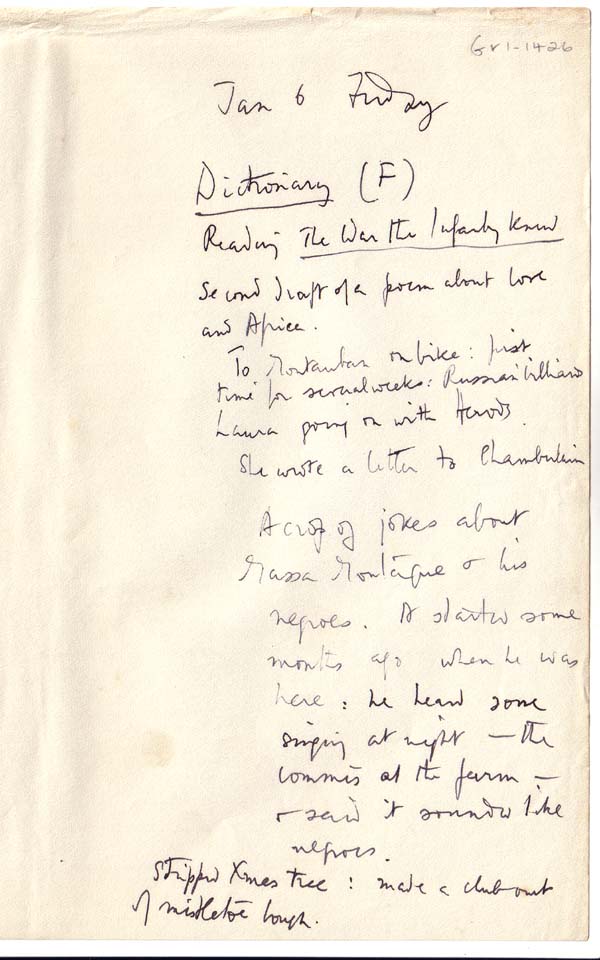 GV1-1426
Jan 6 Friday
Dictionary (F)
Reading The War the Infantry Knew
Second draft of a poem about love
and Africa.
To Montauban on bike: first
time for several weeks: Russian billiards
Laura going on with Herods.
She wrote a letter to Chamberlain
A crop of jokes about
Massa Montague & his
negroes. It started some
months ago when he was
here: he heard some
singing at night — the
commis at the farm —
& said it sounded like
negroes.
Stripped Xmas tree: made a club out
of mistletoe bough.